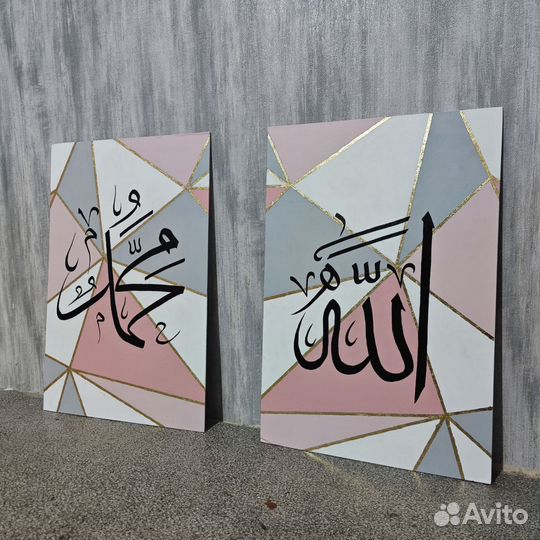 الله
محمد
Avito